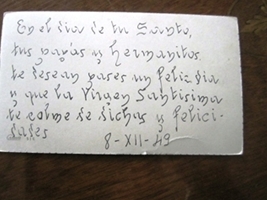 En el dia de tu Santo,
tus papás y hermanitos
te desean pases un feliz dia
y que la Virgen Santisima
te colme de dichas y felici-
dades
8-XII-49